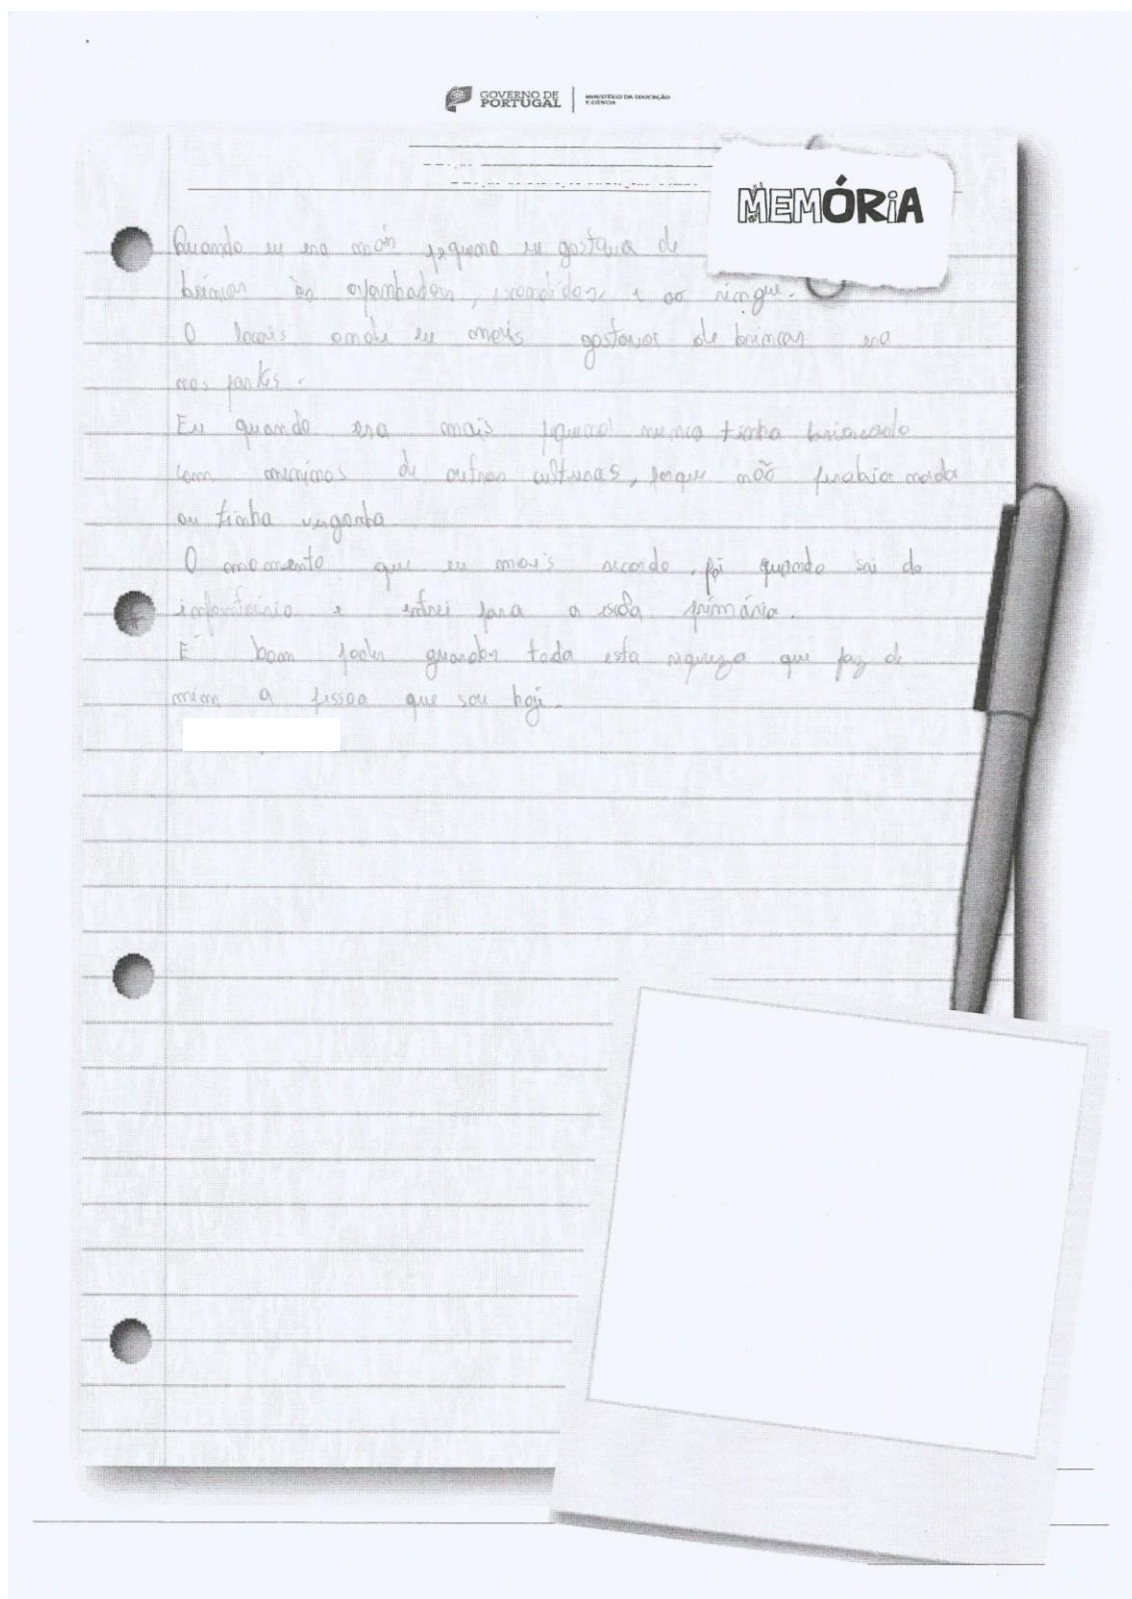 GOVERNO DE
PORTUGAL
MINISTÉRIO DA EDUCAÇÃO
E CIÊNCIA
MEMÓRiA
Quando eu era mais pequeno eu gostava de
brincar às apanhadas, escondidas e ao ringue.
O locais onde eu mais gostava de brincar era
nos
Eu quando era mais pequeno nunca tinha brincado
com meninos de outras culturas, porque não nada
ou tinha vergonha
O momento que eu mais recordo, foi quando sai do
infantário e entrei para a escola primária.
É bom poder guardar toda esta riqueza que faz de
mim a pessoa que sou hoje.